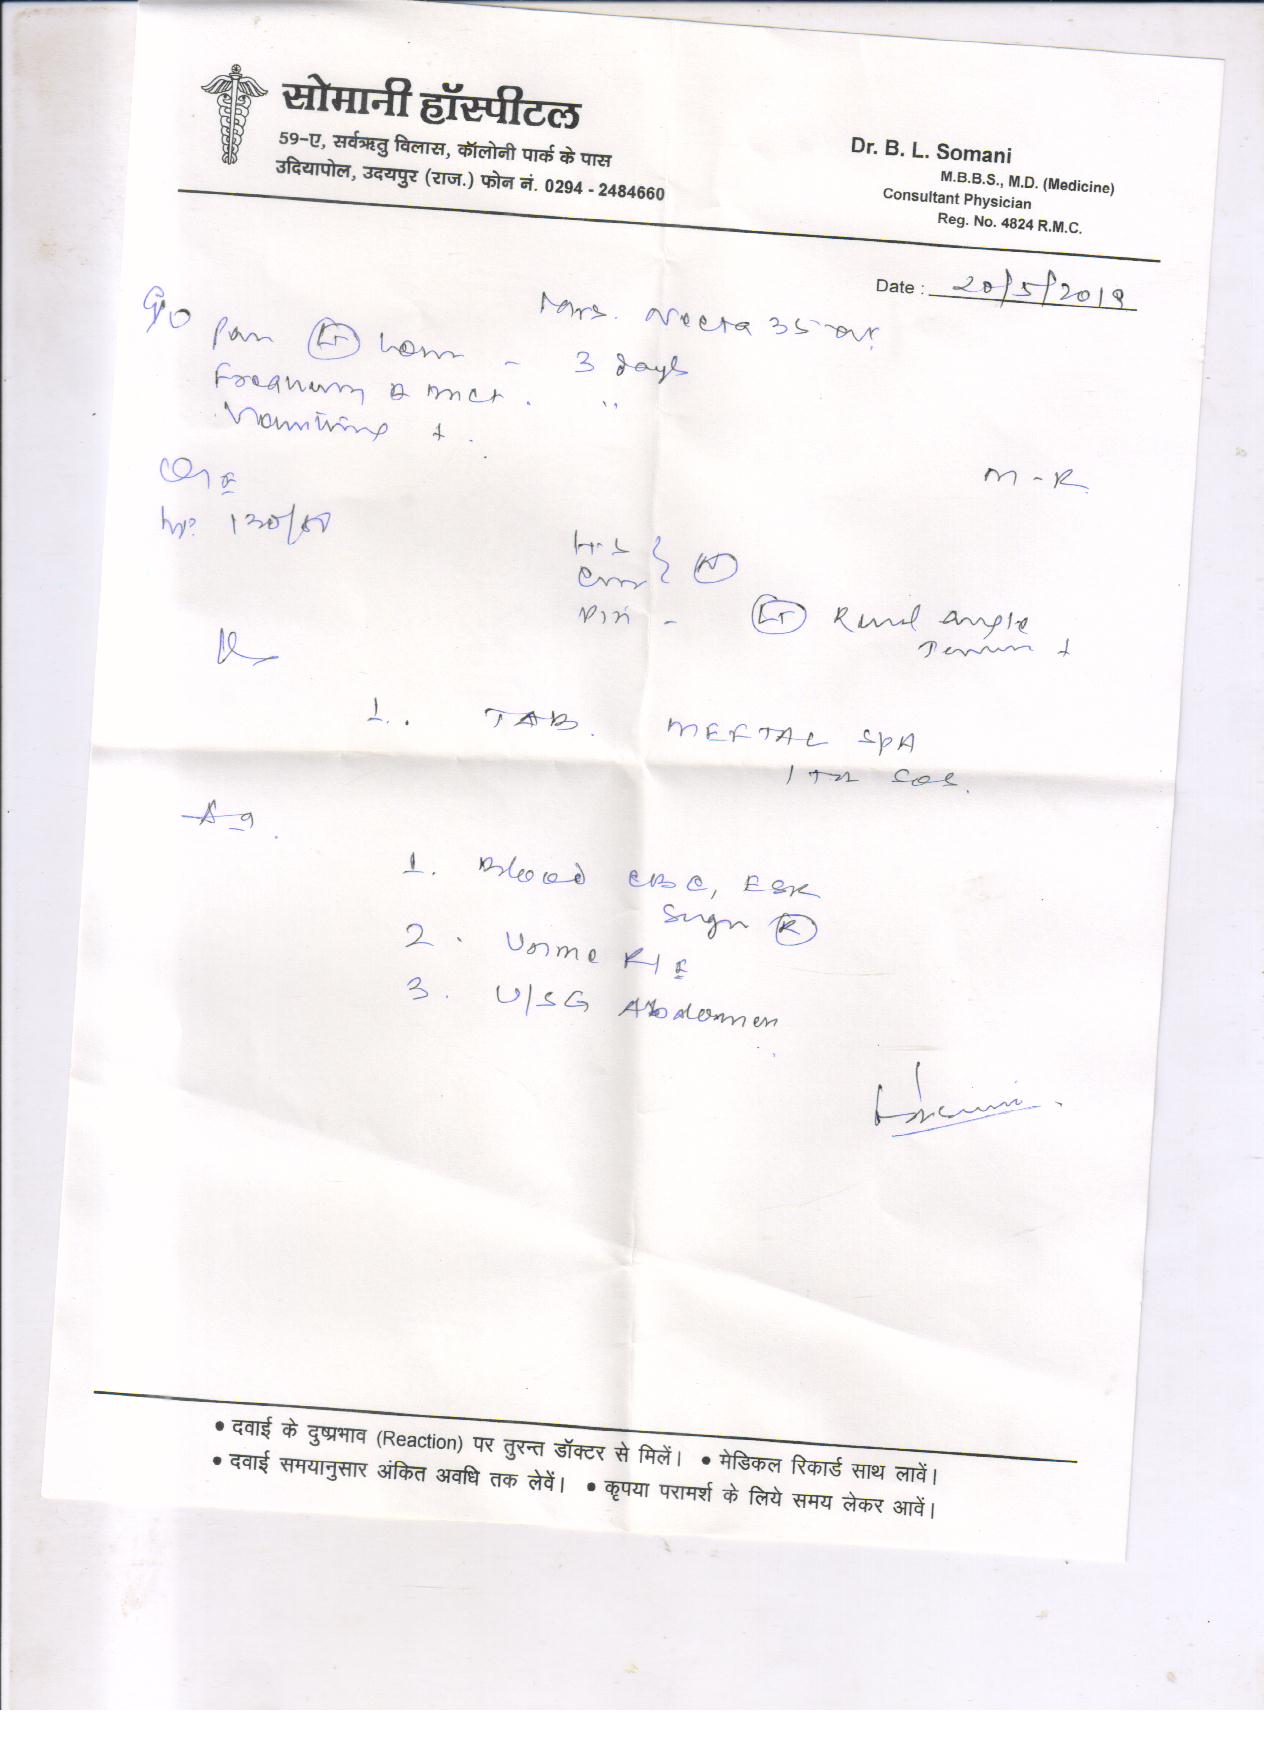 सोमानी हॉस्पीटल
59-ए, सर्वऋतु विलास, कॉलोनी पार्क के पास
उदियापोल, उदयपुर (राज.) फोन नं. 0294 - 2484660
Dr. B. L. Somani
M.B.B.S., M.D. (Medicine)
Consultant Physician
Reg. No. 4824 R.M.C.
Date : 20/5/2019
Mrs. Neeta 35
Pain Lt - 3 days
Frequency . "
Vomiting + .
O/E
M - R
BP:
H.S } N
CNS
P/A - Lt Renal angle
+
1. TAB. MEFTAL SPA
1 TAB SOS.
1. Blood CBC, ESR
Sugar R
2. Urine R/E
3. U/SG Abdomen
• दवाई के दुष्प्रभाव (Reaction) पर तुरन्त डॉक्टर से मिलें। • मेडिकल रिकार्ड साथ लावें।
• दवाई समयानुसार अंकित अवधि तक लेवें। • कृपया परामर्श के लिये समय लेकर आवें।